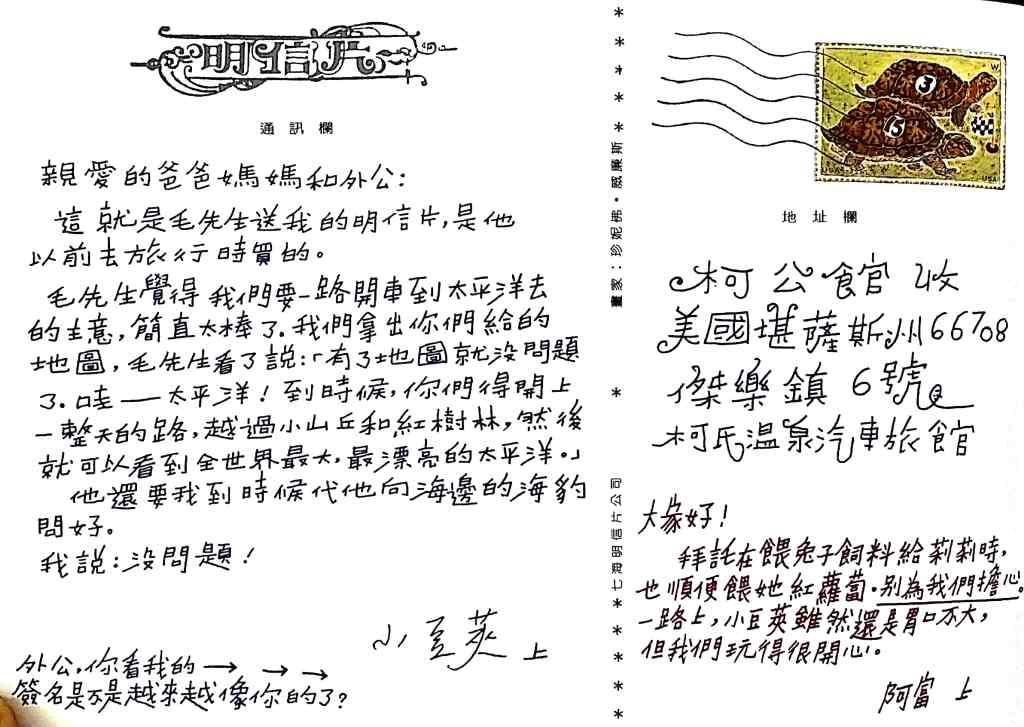 明信片
通訊欄
親愛的爸爸媽媽和外公：
這就是毛先生送我的明信片，是他
以前去旅行時買的。
毛先生覺得我們要一路開車到太平洋去
的主意，簡直太棒了。我們拿出你們給的
地圖，毛先生看了說：「有了地圖就沒問題
了。哇——太平洋！到時候，你們得開上
一整天的路，越過小山丘和紅樹林，然後
就可以看到全世界最大，最漂亮的太平洋。」
他還要我到時候代他向海邊的海豹
問好。
我說：沒問題！
小豆莢 上
外公，你看我的→ → → →
簽名是不是越來越像你的了？
畫家：珍妮佛·威廉斯
七海明信片公司
3
15
USA
地址欄
柯公館 收
美國堪薩斯州66708
傑樂鎮 6號
柯氏溫泉汽車旅館
大家好！
拜託在餵兔子飼料給莉莉時，
也順便餵她紅蘿蔔。別為我們擔心。
一路上，小豆莢雖然還是胃口不大，
但我們玩得很開心。
阿富 上